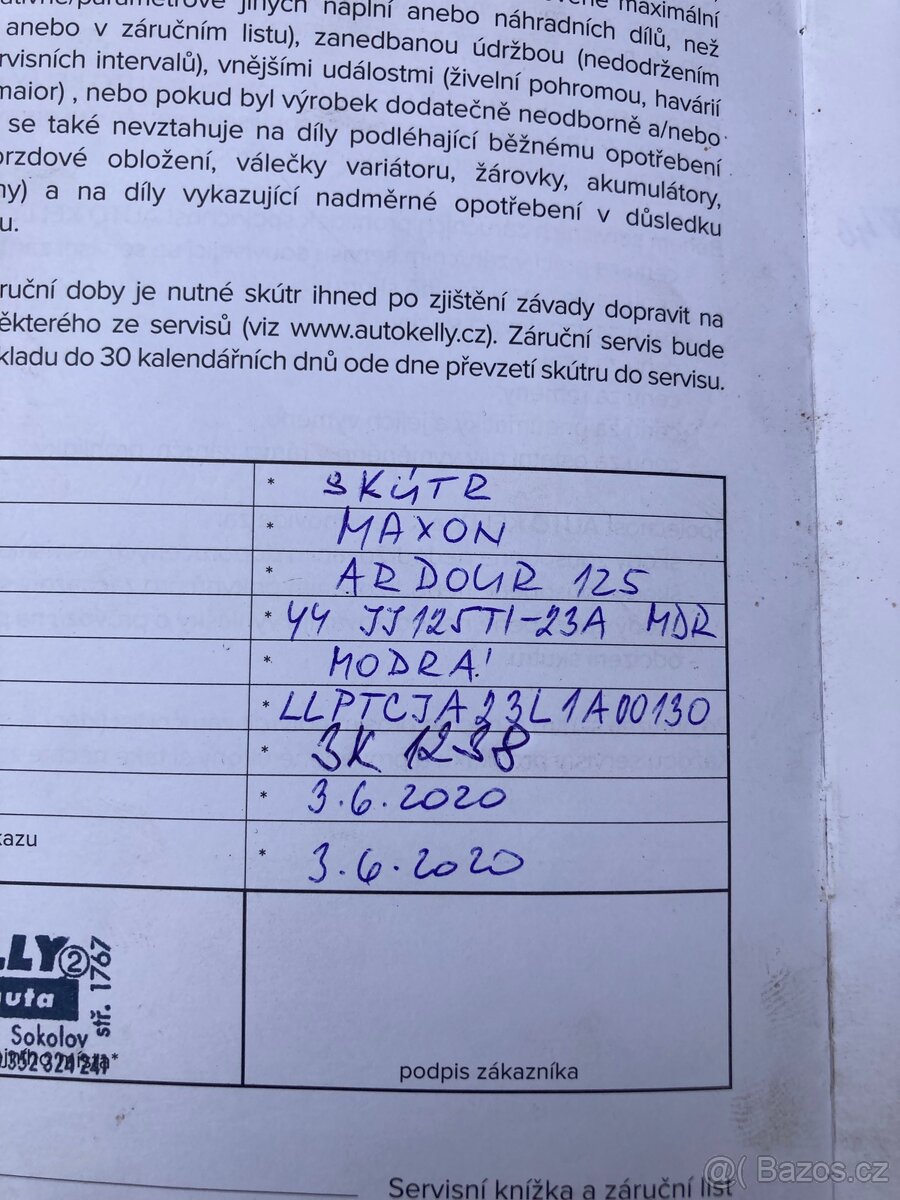 maximální
jiných náplní anebo náhradních dílů, než
anebo v záručním listu), zanedbanou údržbou (nedodržením
rvisních intervalů), vnějšími událostmi (živelní pohromou, havárií
maior) , nebo pokud byl výrobek dodatečně neodborně a/nebo
se také nevztahuje na díly podléhající běžnému opotřebení
orzdové obložení, válečky variátoru, žárovky, akumulátory,
ny) a na díly vykazující nadměrné opotřebení v důsledku
u.
ruční doby je nutné skútr ihned po zjištění závady dopravit na
ěkterého ze servisů (viz www.autokelly.cz). Záruční servis bude
kladu do 30 kalendářních dnů ode dne převzetí skútru do servisu.
* SKÚTR
* MAXON
* ARDOUR 125
* YY JJ125TI-23A MDR
* MODRÁ
* LLPTCJA23L1A00130
* 3K 1238
* 3.6.2020
kazu
* 3.6.2020
LLY 2
uta
stř. 1767
Sokolov
352 324 241
podpis zákazníka
Servisní knížka a záruční list
@( Bazos.cz